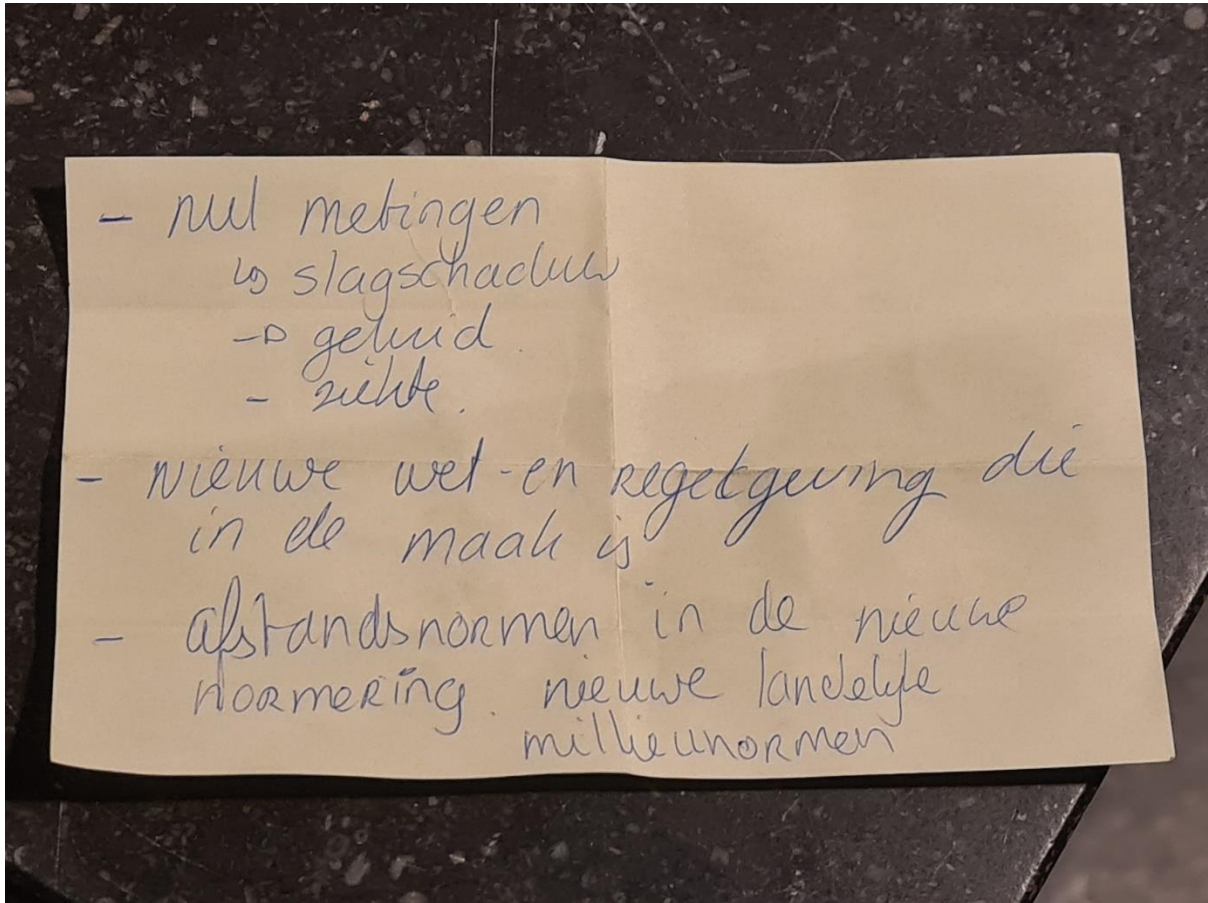 - nul metingen
↳ slagschaduw
→ geluid
- ziekte.
- nieuwe wet-en regelgeving die
in de maak is
- afstandsnormen in de nieuwe
normering. nieuwe landelijke
millieunormen